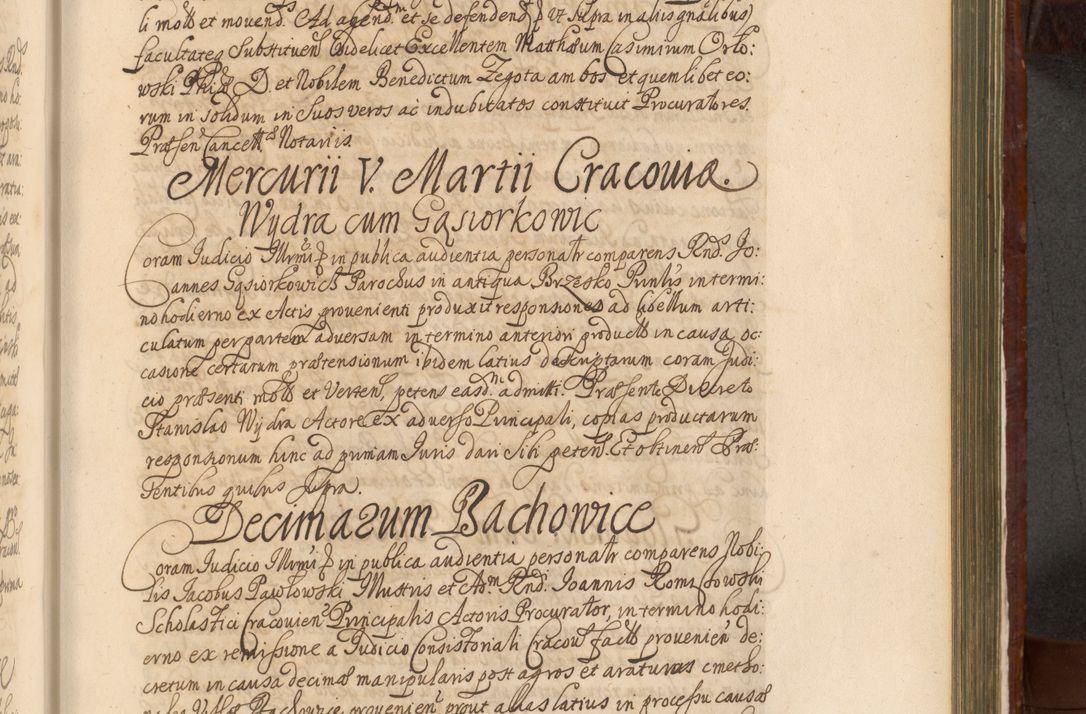 li motis et movend. Ad agend. et se defendend. p ut supra in aliis gnalibus
facultateq Substituen. Videlicet Excellentem Matthæum Casimirum Orlo:
wski Phiæ D. et Nobilem Benedictum Zegota ambos et quemlibet eo:
rum in solidum in suos veros ac indubitatos constituit Procuratores.
Præsen. Cancell. Notariis
Mercurii V. Martii Cracoviæ.
Wydra cum Gąsiorkowic
Coram Judicio Illrmi p in publica audientia personalr comparens Rnd. Jo:
annes Gąsiorkowich Parochus in antiqua Brzesko Prinlis in termi:
no hodierno ex Actis provenienti produxit responsiones ad libellum arti:
culatum per partem adversam in termino anteriori productt in causa oc:
casione certarum prætensionum ibidem latius descriptarum coram Judi:
cio præsenti mott et Verten, petens easd. admitti. Præsente Discreto
Stanislao Wydra Actore ex adverso Principali, copias productarum
responsionum hinc ad primam Juris dari sibi peten. Et obtinen. Præ:
sentibus quibus supra.
Decimarum Bachowice
Coram Judicio Illrmi p in publica audientia personalr comparens Nobi:
lis Jacobus Pawłowski Illustris et Adm. Rnd. Joannis Roma
Scholastici Cracovien. Principalis Actoris Procurator, in termino hodi:
erno ex remissione a Judicio Consistoriali Cracov. factt provenien. de:
cretum in causa decimæ manipularis post agros et araturas cmetho:
Bachowice provenien. prout alias latius in processu causæ